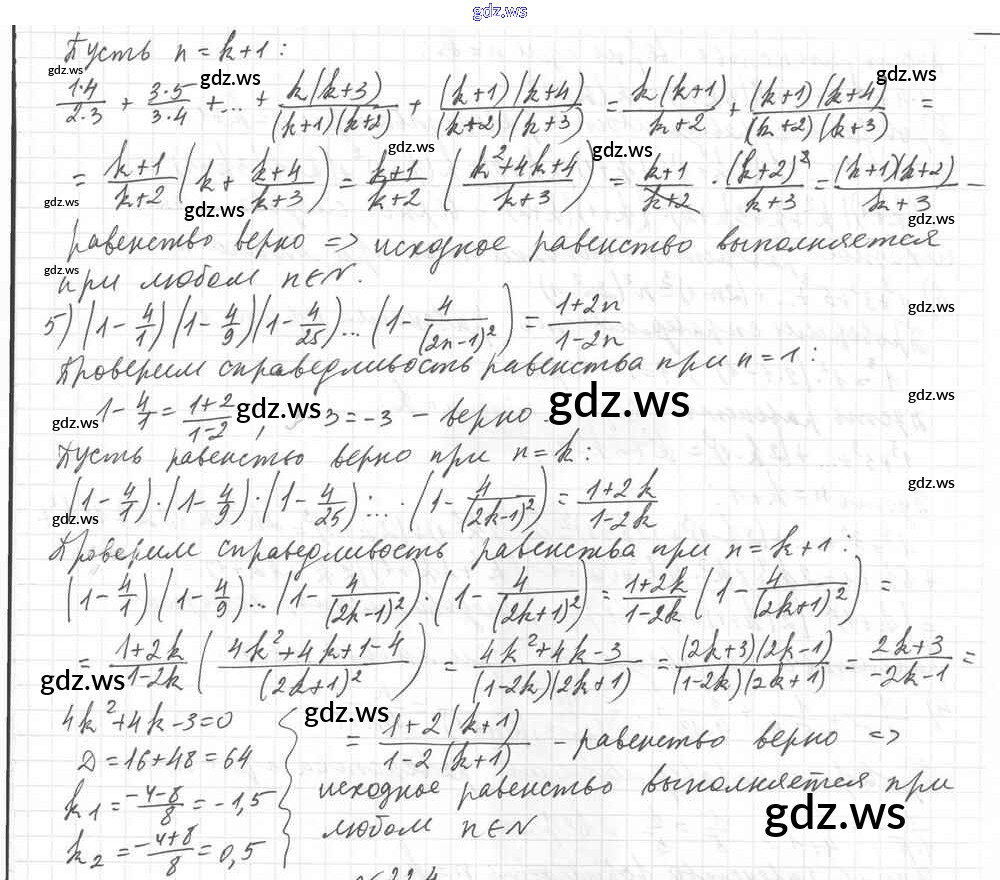 gdz.ws
Пусть n = k+1 :
gdz.ws gdz.ws gdz.ws
1·4/2·3 + 3·5/3·4 + ... + k(k+3)/(k+1)(k+2) + (k+1)(k+4)/(k+2)(k+3) = k(k+1)/k+2 + (k+1)(k+4)/(k+2)(k+3) =
gdz.ws gdz.ws
= k+1/k+2 (k + k+4/k+3) = k+1/k+2 (k²+4k+4/k+3) = k+1/k+2 · (k+2)²/k+3 = (k+1)(k+2)/k+3 –
gdz.ws gdz.ws gdz.ws
равенство верно => исходное равенство выполняется
gdz.ws
при любом n∈N.
gdz.ws
5) (1 - 4/1)(1 - 4/9)(1 - 4/25)...(1 - 4/(2n-1)²) = 1+2n/1-2n
Проверим справедливость равенства при n = 1 :
gdz.ws gdz.ws gdz.ws
1 - 4/1 = 1+2/1-2 , -3 = -3 – верно
Пусть равенство верно при n = k :
gdz.ws
(1 - 4/1)·(1 - 4/9)·(1 - 4/25): ... (1 - 4/(2k-1)²) = 1+2k/1-2k
gdz.ws
Проверим справедливость равенства при n = k+1 :
(1 - 4/1)(1 - 4/9)...(1 - 4/(2k-1)²)·(1 - 4/(2k+1)²) = 1+2k/1-2k (1 - 4/(2k+1)²) =
= 1+2k/1-2k (4k²+4k+1-4/(2k+1)²) = 4k²+4k-3/(1-2k)(2k+1) = (2k+3)(2k-1)/(1-2k)(2k+1) = 2k+3/-2k-1 =
gdz.ws
4k²+4k-3=0
D = 16+48 = 64
k1 = -4-8/8 = -1,5
k2 = -4+8/8 = 0,5
gdz.ws
= 1+2(k+1)/1-2(k+1) – равенство верно =>
исходное равенство выполняется при
любом n∈N
gdz.ws